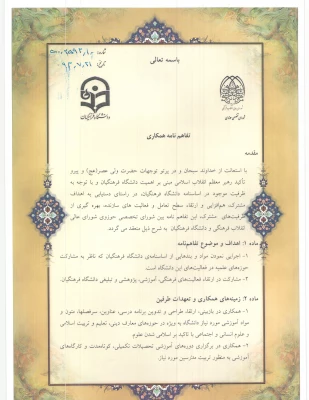 باسمه تعالی
شماره:
تاریخ: ۹۳,۷,۲۱
دانشگاه فرهنگیان
تفاهم نامه همکاری
مقدمه
با استعانت از خداوند سبحان و در پرتو توجهات حضرت ولی عصر(عج) و پیرو
تأکید رهبر معظم انقلاب اسلامی مبنی بر اهمیت دانشگاه فرهنگیان و با توجه به
ظرفیت موجود در اساسنامه دانشگاه فرهنگیان، در راستای دستیابی به اهداف
مشترک، هم‌افزایی و ارتقاء سطح تعامل و فعالیت های سازنده، بهره گیری از
ظرفیت‌های مشترک، این تفاهم نامه بین شورای تخصصی حوزوی شورای عالی
انقلاب فرهنگی و دانشگاه فرهنگیان به شرح ذیل منعقد می گردد.
ماده ۱: اهداف و موضوع تفاهم‌نامه
۱- اجرایی نمودن مواد و بندهایی از اساسنامه‌ی دانشگاه فرهنگیان که ناظر به مشارکت
حوزه‌های علمیه در فعالیت‌های این دانشگاه است.
۲- مشارکت در ارتقاء فعالیت‌های فرهنگی، آموزشی، پژوهشی و تبلیغی دانشگاه فرهنگیان.
ماده ۲: زمینه‌های همکاری و تعهدات طرفین
۱- همکاری در بازبینی، ارتقاء، طراحی و تدوین برنامه درسی، عناوین، سرفصلها، متون و
مواد آموزشی مورد نیاز دانشگاه به ویژه در حوزه‌های معارف دینی، تعلیم و تربیت اسلامی
و علوم انسانی و اجتماعی با تاکید بر اسلامی شدن علوم
۲- همکاری در برگزاری دوره‌های آموزشی تحصیلات تکمیلی، کوتاه‌مدت و کارگاه‌های
آموزشی به منظور تربیت مدرسین مورد نیاز